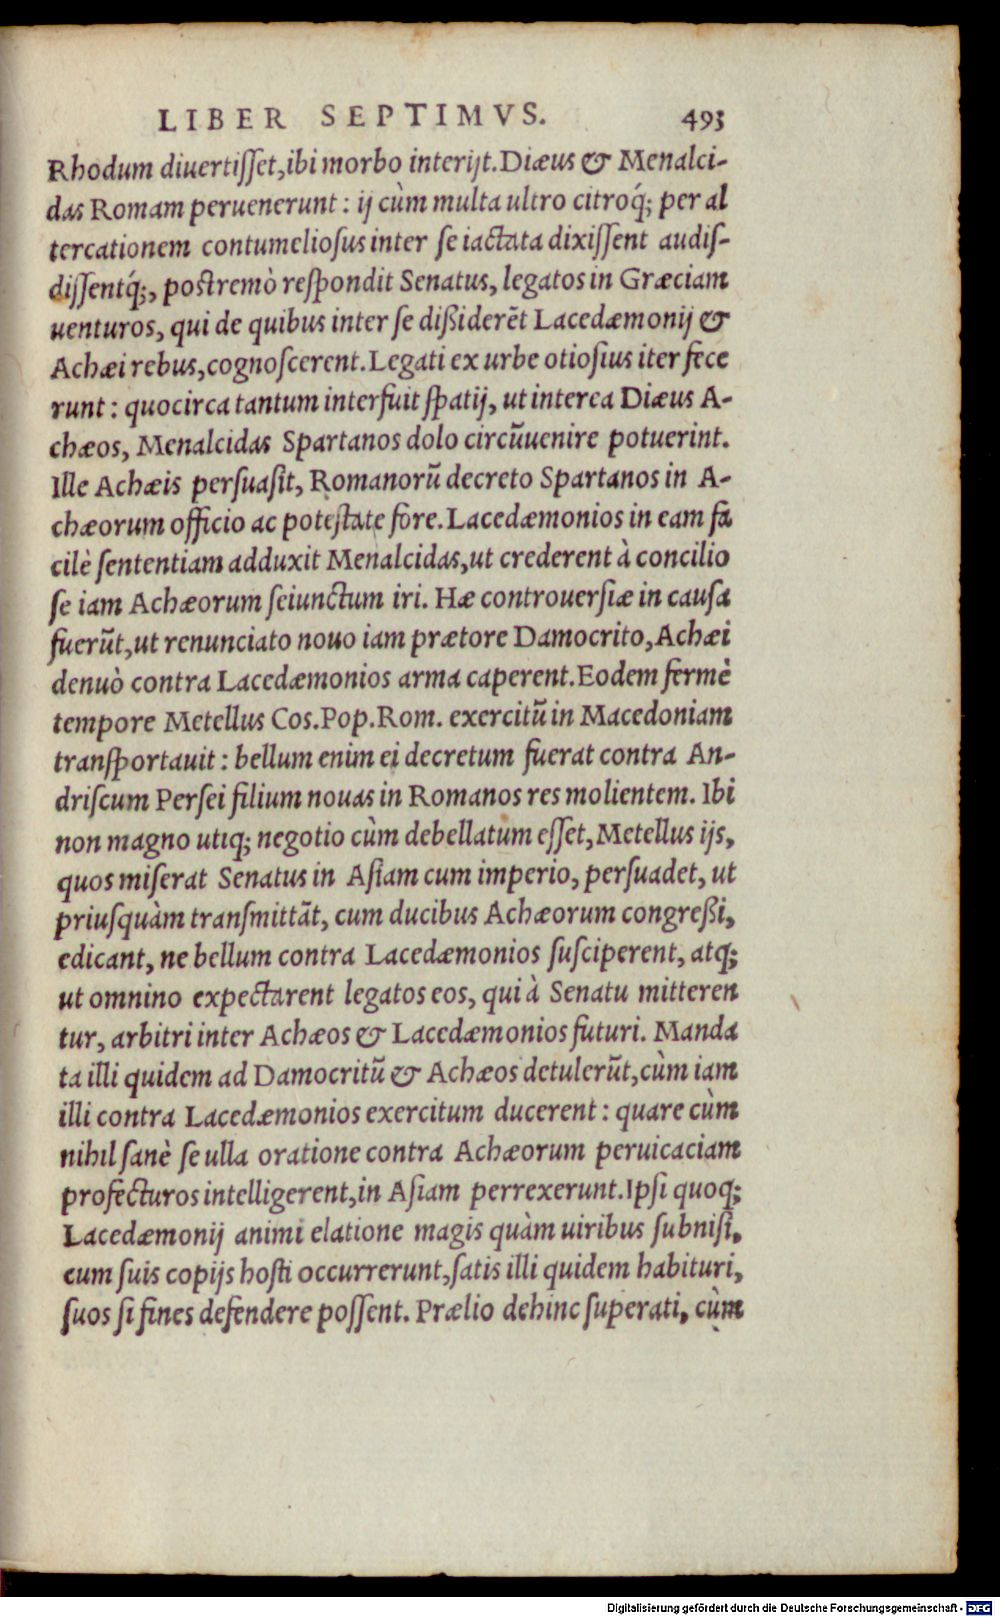 LIBER SEPTIMVS. 493
Rhodum diuertiſſet, ibi morbo interijt. Diæus & Menalci-
das Romam peruenerunt: ij cùm multa ultro citroq́; per al
tercationem contumelioſus inter ſe iactata dixiſſent audiſ-
diſſentq́;, poſtremò reſpondit Senatus, legatos in Græciam
uenturos, qui de quibus inter ſe dißiderẽt Lacedæmonij &
Achæi rebus, cognoſcerent. Legati ex urbe otioſius iter fece
runt: quocirca tantum interfuit ſpatij, ut interea Diæus A-
chæos, Menalcidas Spartanos dolo circũuenire potuerint.
Ille Achæis perſuaſit, Romanorũ decreto Spartanos in A-
chæorum officio ac poteſtate fore. Lacedæmonios in eam fa
cilè ſententiam adduxit Menalcidas, ut crederent à concilio
ſe iam Achæorum ſeiunctum iri. Hæ controuerſiæ in cauſa
fuerũt, ut renunciato nouo iam prætore Damocrito, Achæi
denuò contra Lacedæmonios arma caperent. Eodem fermè
tempore Metellus Cos. Pop. Rom. exercitũ in Macedoniam
tranſportauit: bellum enim ei decretum fuerat contra An-
driſcum Perſei filium nouas in Romanos res molientem. Ibi
non magno utiq; negotio cùm debellatum eſſet, Metellus ijs,
quos miſerat Senatus in Aſiam cum imperio, perſuadet, ut
priuſquàm tranſmittãt, cum ducibus Achæorum congreßi,
edicant, ne bellum contra Lacedæmonios ſuſciperent, atq;
ut omnino expectarent legatos eos, qui à Senatu mitteren
tur, arbitri inter Achæos & Lacedæmonios futuri. Manda
ta illi quidem ad Damocritũ & Achæos detulerũt, cùm iam
illi contra Lacedæmonios exercitum ducerent: quare cùm
nihil ſanè ſe ulla oratione contra Achæorum peruicaciam
profecturos intelligerent, in Aſiam perrexerunt. Ipſi quoq;
Lacedæmonij animi elatione magis quàm uiribus ſubniſi,
cum ſuis copijs hoſti occurrerunt, ſatis illi quidem habituri,
ſuos ſi fines defendere poſſent. Prælio dehinc ſuperati, cùm
Digitalisierung gefördert durch die Deutsche Forschungsgemeinschaft - DFG